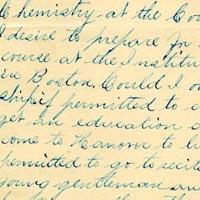 Chemistry at the Co
I desire to prepare for
course at the Institu
in Boston. Could I o
ship if permitted to a
get an education a
come to Hanover to li
permitted to go to recit
young gentleman an